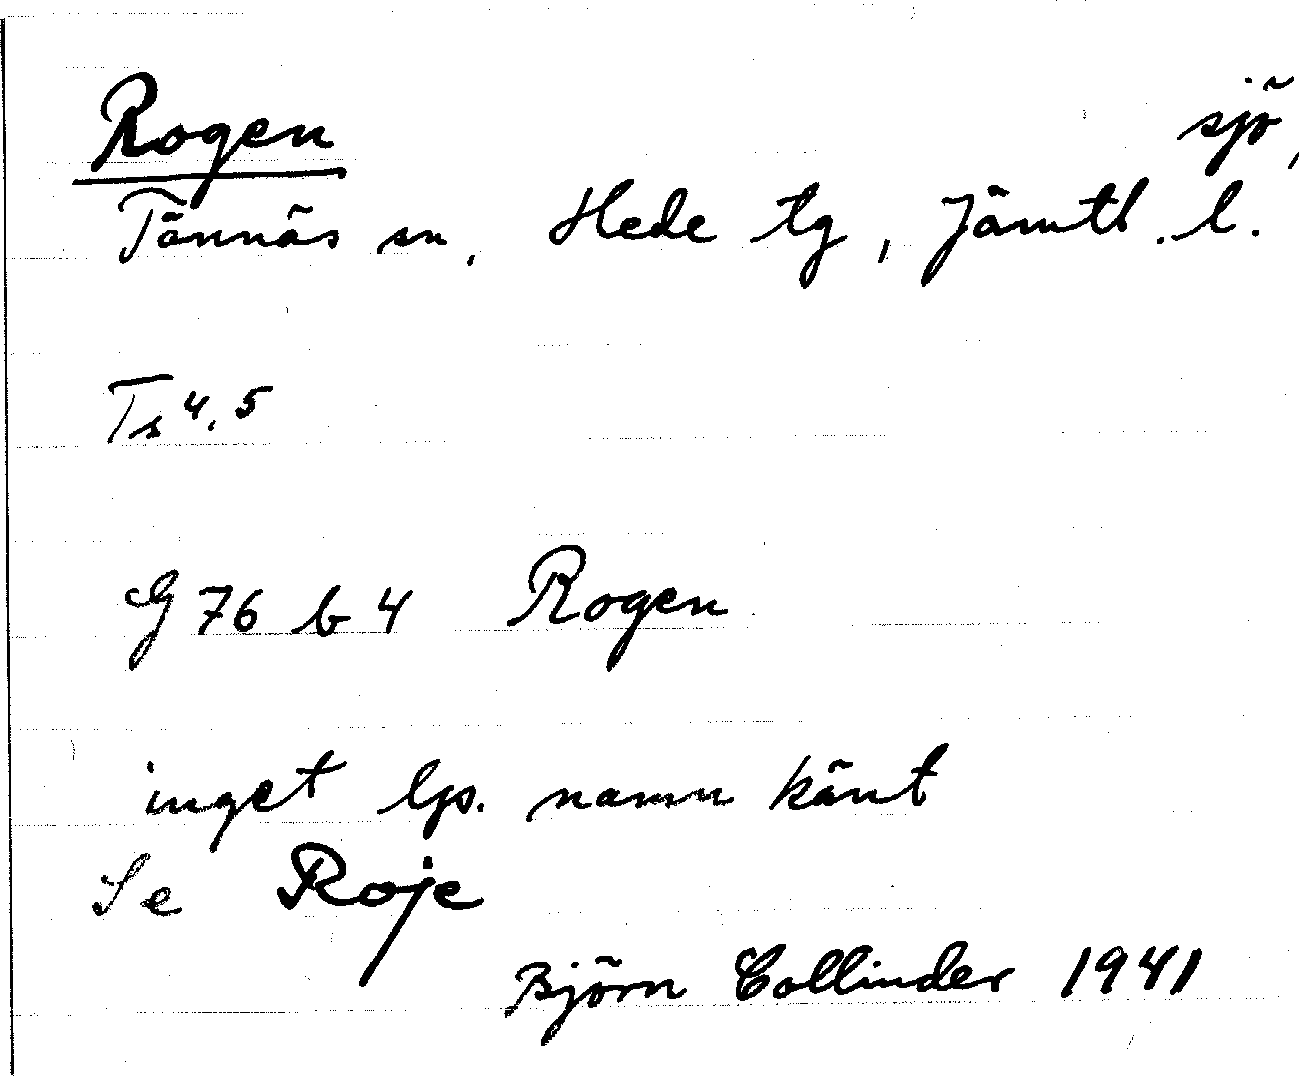 Rogen sjö,
Tännäs sn, Hede tg, Jämtl. l.
Ts 4, 5
G 76 b 4 Rogen
inget lp. namn känt
Se Roje
Björn Collinder 1941